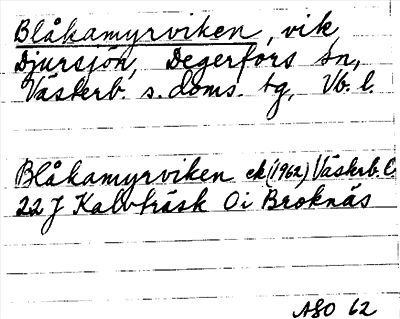 Blåkamyrviken, vik
Djursjön, Degerfors sn,
Västerb. s. doms. tg, Vb. l.
Blåkamyrviken ek (1962) Västerb. l
22 J Kalvträsk 0i Broknäs
ASO 62